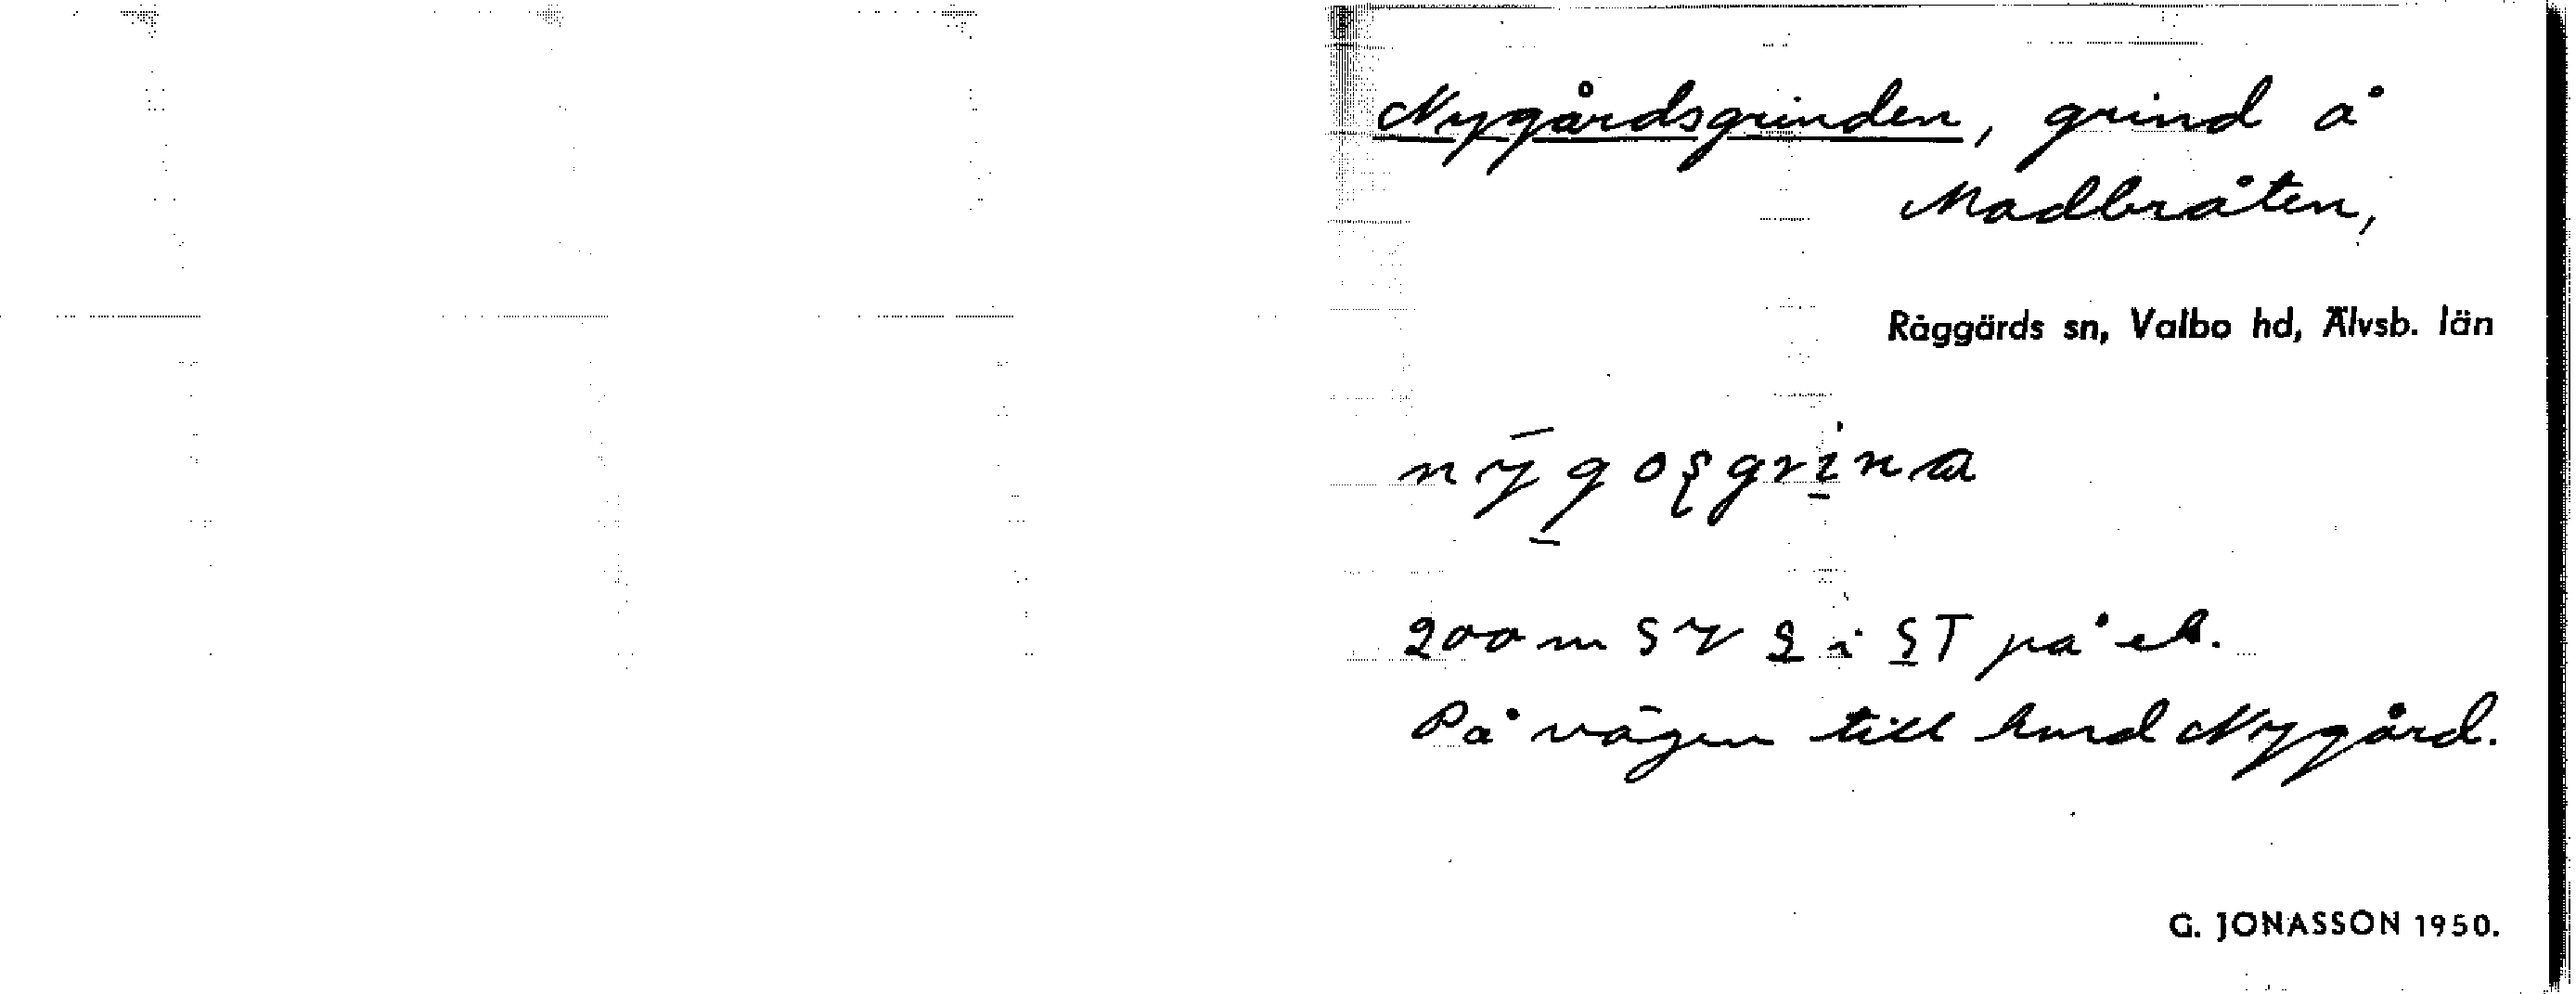 Nygårdsgrinden, grind å
Madbråten,
Råggärds sn, Valbo hd, Älvsb. län
200 m SV S i ST på ek.
På vägen till hmd Nygård.
G. JONASSON 1950.